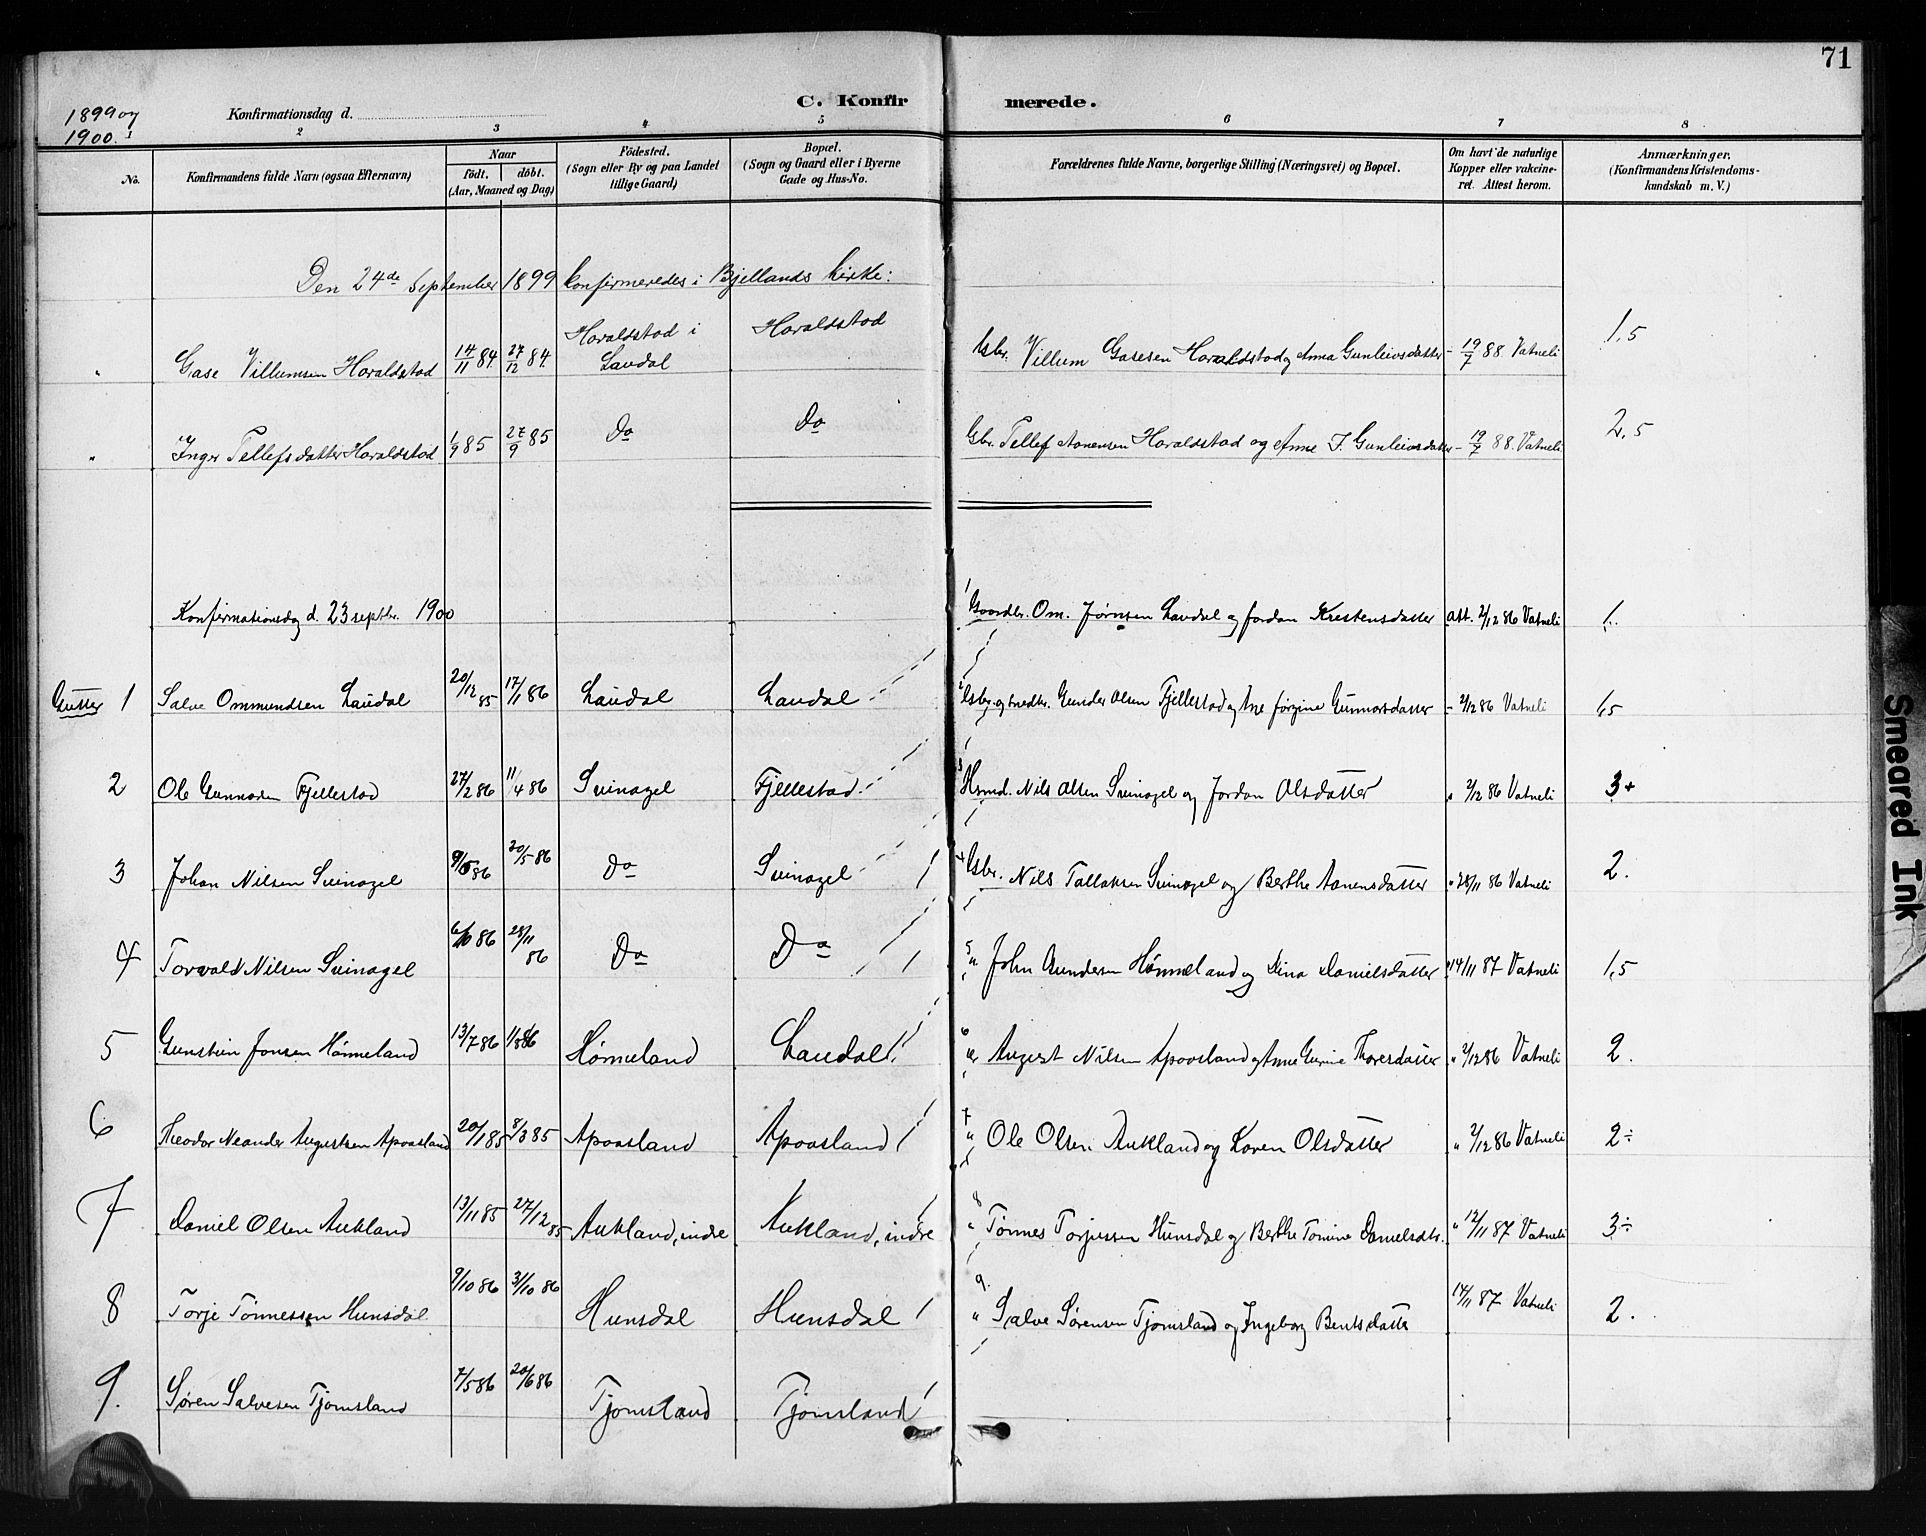 71
C. Konfirmerede.
1899 og
1900.
Konfirmationsdag d.
1 2 3 4 5 6 7 8
No.
Konfirmandens fulde Navn (ogsaa Efternavn)
Naar
födt. döbt.
(Aar, Maaned og Dag)
Födested.
(Sogn eller By og paa Landet
tillige Gaard)
Bopæl.
(Sogn og Gaard eller i Byerne
Gade og Hus-No.
Forældrenes fulde Navne, borgerlige Stilling (Næringsvei) og Bopæl.
Om havt de naturlige
Kopper eller vakcine-
ret. Attest herom.
Anmærkninger.
(Konfirmandens Kristendoms-
kundskab m. V.)
Den 24de September 1899 konfirmeredes i Bjellands kirke:
" Gase Villumsen Haraldstad 14/11 84 27/12 84 Haraldstad i Laudal Haraldstad Gbr. Villum Gasesen Haraldstad og Anna Gunleivsdatter – 19/7 88 Vatneli 1,5
" Inger Tellefsdatter Haraldstad 1/9 85 27/9 85 Do Do Gbr. Tellef Aanensen Haraldstad og Anne J. Gunleivsdatter – 19/7 88. Vatneli 2,5
Konfirmationsdag d. 23 septbr. 1900
Gutter 1 Salve Ommundsen Laudal 20/12 85 17/1 86 Laudal Laudal
1 Gaardbr. Om. Jørnsen Laudal og Jordan Kristensdatter att. 2/12 86 Vatneli 1.
2 Ole Gunnarsen Fjellestad 27/2 86 11/4 86 Svinagel Fjellestad
2 Gbr. og Gunder Olsen Fjellestad og Ane Jørgine Gunnarsdatter – 2/12 86 Vatneli 1,5
3 Johan Nilsen Svinagel 9/5 86 20/5 86 Do Svinagel
3 Hsmd. Nils Olsen Svinagel og Jordan Olsdatter " 2/12 86 Vatneli 3+
4 Torvald Nilsen Svinagel 6/10 86 28/11 86 Do Do
4 Gbr. Nils Tallaksen Svinagel og Berthe Aanensdatter " 28/11 86 Vatneli 2.
5 Gunstein Jonsen Hönneland 13/7 86 1/8 86 Hönneland Laudal
5 " John Gundersen Hönneland og Stina Danielsdatter " 14/11 87 Vatneli 1,5
6 Theodor Neander Augustsen Apaasland 20/1 85 8/3 85 Apaasland Apaasland
6 " August Nilsen Apaasland og Anne Gurine Thoresdatter " 2/12 86 Vatneli 2.
7 Daniel Olsen Aukland 13/11 85 27/12 85 Aukland, indre Aukland, indre
7 " Ole Olsen Aukland og Karen Olsdatter " 2/12 86 Vatneli 2÷
8 Torje Tönnessen Hunsdal 9/10 86 31/10 86 Hunsdal Hunsdal
8 " Tönnes Torjussen Hunsdal og Berthe Tomine Danielsdtr. " 12/11 87 Vatneli 3÷
9. Søren Salvesen Tjomsland 7/5 86 20/6 86 Tjomsland Tjomsland
9. " Salve Sørensen Tjomsland og Ingeborg Bentsdatter 14/11 87 Vatneli 2.
Smeared Ink